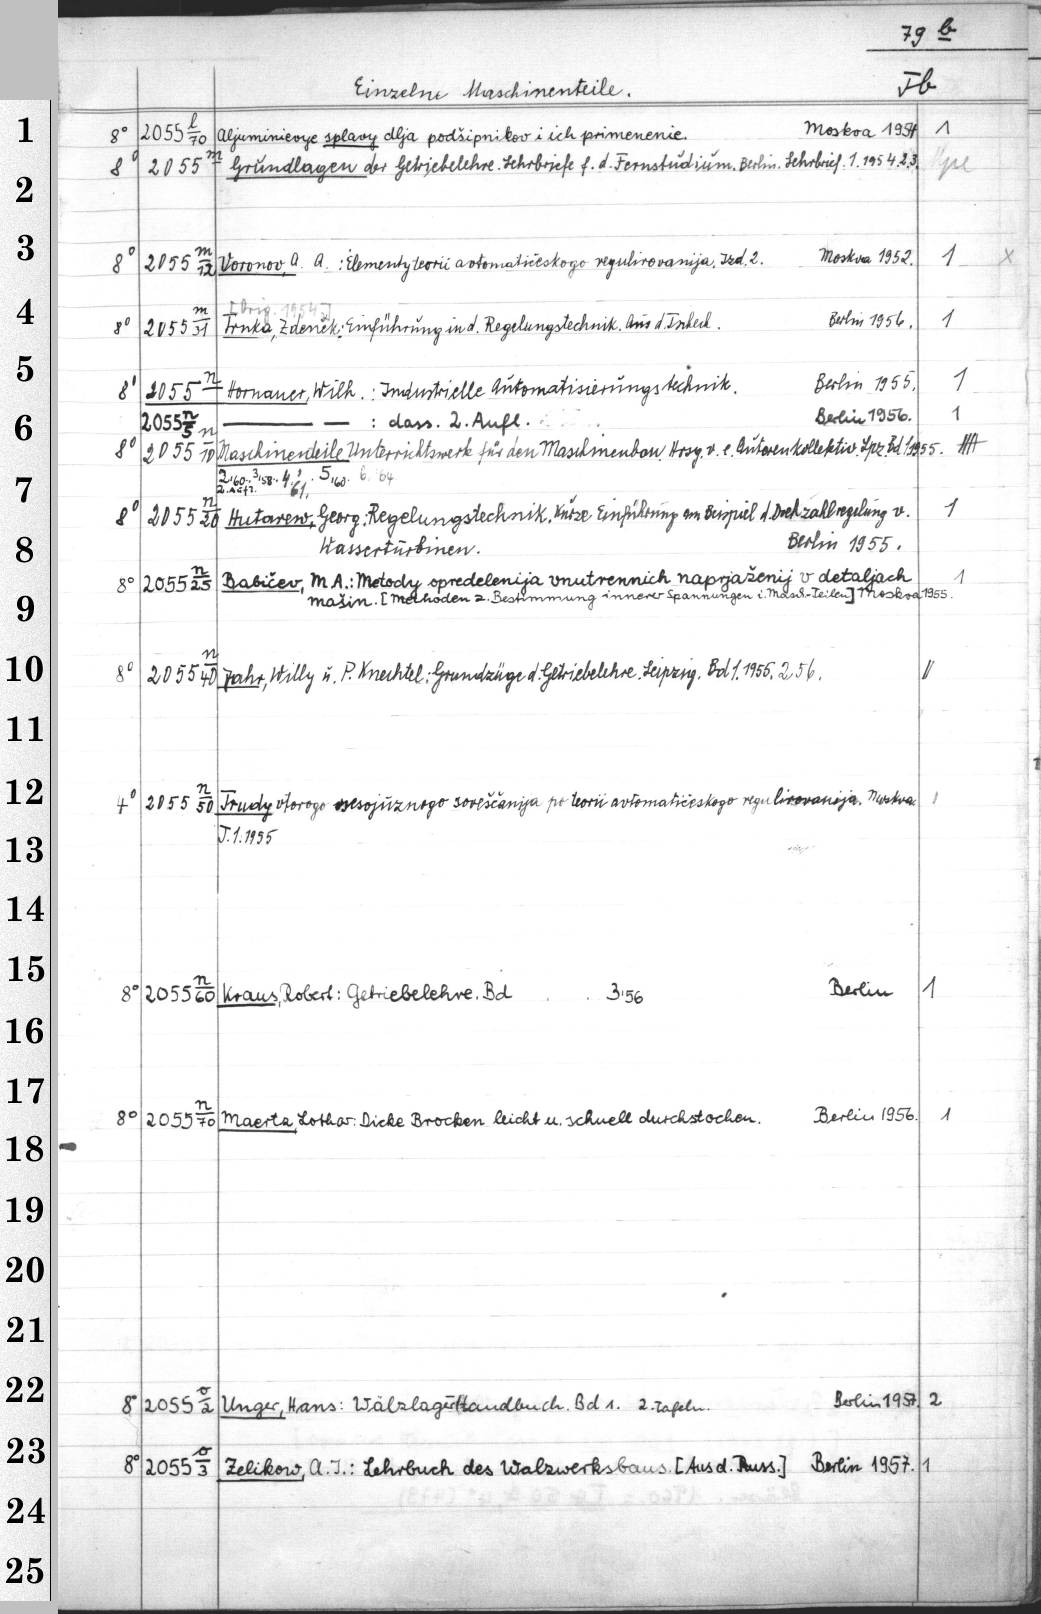 79 b
Einzelne Maschinenteile. Jb
1 8° 2055 l/70 Aljuminievye splavy dlja podšipnikov i ich primenenie. Moskva 1954 1
8° 2055 m Grundlagen der Getriebelehre. Lehrbriefe f. d. Fernstudium. Berlin. Lehrbrief. 1. 1954. 2. 3.
2
3 8° 2055 m/12 Voronov, A. A.: Elementy teorii avtomatičeskogo regulirovanija. Izd. 2. Moskva 1952. 1 x
[Orig. 1954]
4 8° 2055 m/31 Trnka, Zdeněk: Einführung in d. Regelungstechnik. Aus d. Tschech. Berlin 1956. 1
5 8° 2055 n Hornauer, Wilh.: Industrielle Automatisierungstechnik. Berlin 1955. 1
6 2055 n/5 — — : dass. 2. Aufl. Berlin 1956. 1
8° 2055 n/10 Maschinenteile Unterrichtswerk für den Maschinenbau. Hrsg. v. e. Autorenkollektiv. Lpz. Bd 1. 1955.
7 2,'60. 3,'58. 4,'61. 5,'60. 6.'64
2. Aufl.
8° 2055 n/20 Hutarew, Georg: Regelungstechnik. Kurze Einführung am Beispiel d. Drehzahlregelung v. 1
8 Wasserturbinen. Berlin 1955.
8° 2055 n/25 Babičev, M A.: Metody opredelenija vnutrennich naprjaženij v detaljach 1
9 mašin. [Methoden z. Bestimmung innerer Spannungen i. Masch.-Teilen] Moskva 1955.
10 8° 2055 n/40 Jahr, Willy u. P. Knechtel: Grundzüge d. Getriebelehre. Leipzig. Bd 1. 1955. 2 56. II
11
12 4° 2055 n/50 Trudy vtorogo vsesojuznogo soveščanija po teorii avtomatičeskogo regulirovanija. Moskva 1
13 T. 1. 1955
14
15 8° 2055 n/60 Kraus, Robert: Getriebelehre. Bd 3.'56 Berlin 1
16
17 8° 2055 n/70 Maerta, Lothar: Dicke Brocken leicht u. schnell durchstochen. Berlin 1956. 1
18
19
20
21
22 8° 2055 o/2 Unger, Hans: Wälzlager Handbuch. Bd 1. 2. Tafeln. Berlin 1957. 2
23 8° 2055 o/3 Zelikow, A. I.: Lehrbuch des Walzwerksbaus. [Aus d. Russ.] Berlin 1957. 1
24
25